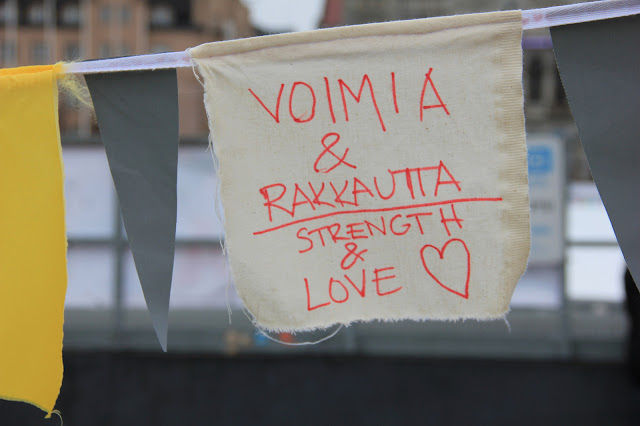 VOIMIA
&
RAKKAUTTA
STRENGTH
&
LOVE ♡